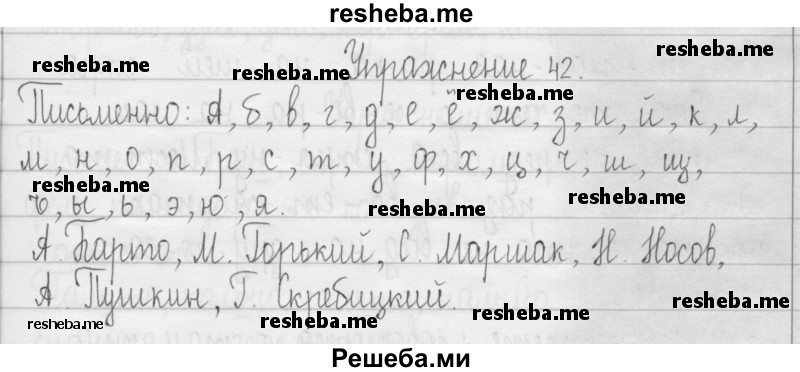 resheba.me
Упражнение 42.
resheba.me
resheba.me
resheba.me
resheba.me
Письменно: А, б, в, г, д, е, ё, ж, з, и, й, к, л,
м, н, о, п, р, с, т, у, ф, х, ц, ч, ш, щ,
resheba.me
resheba.me
resheba.me
ъ, ы, ь, э, ю, я.
А Барто, М. Горький, С. Маршак, Н. Носов,
А Пушкин, Г. Скребицкий.
resheba.me
resheba.me
resheba.me
resheba.me
Решеба.ми